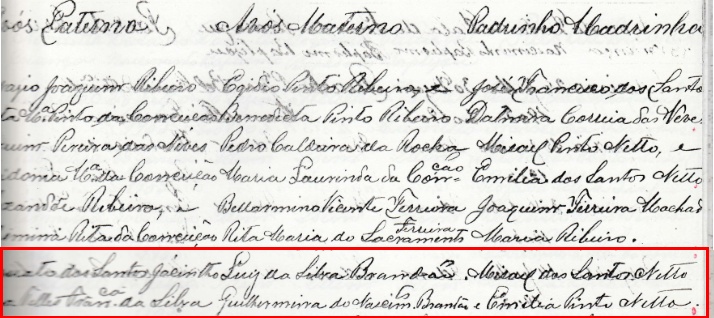 Paterno Avós Materno Padrinho Madrinha
Joaquim Ribeiro Egidio Pinto Ribeiro, e José Francisco dos Santos
Pinto da Conceição Benedicta Pinto Ribeiro Dalmira Correia das Neve
Pereira das Neves Pedro Caldeira da Rocha Misael Pinto Netto, e
Mª da Conceição Maria Laurinda da Concção Emilia dos Santos Netto
Ribeiro, e Bellarmino Vicente Ferreira Joaquim Ferreira Machad
Rita da Conceição Rita Maria do Sacramento Ferreira Maria Ribeiro.
dos Santos Jacintho Luiz da Silva Brandão. Misael dos Santos Netto
Francca da Silva Guilhermina do Nascimto Brandão e Emilia Pinto Netto.